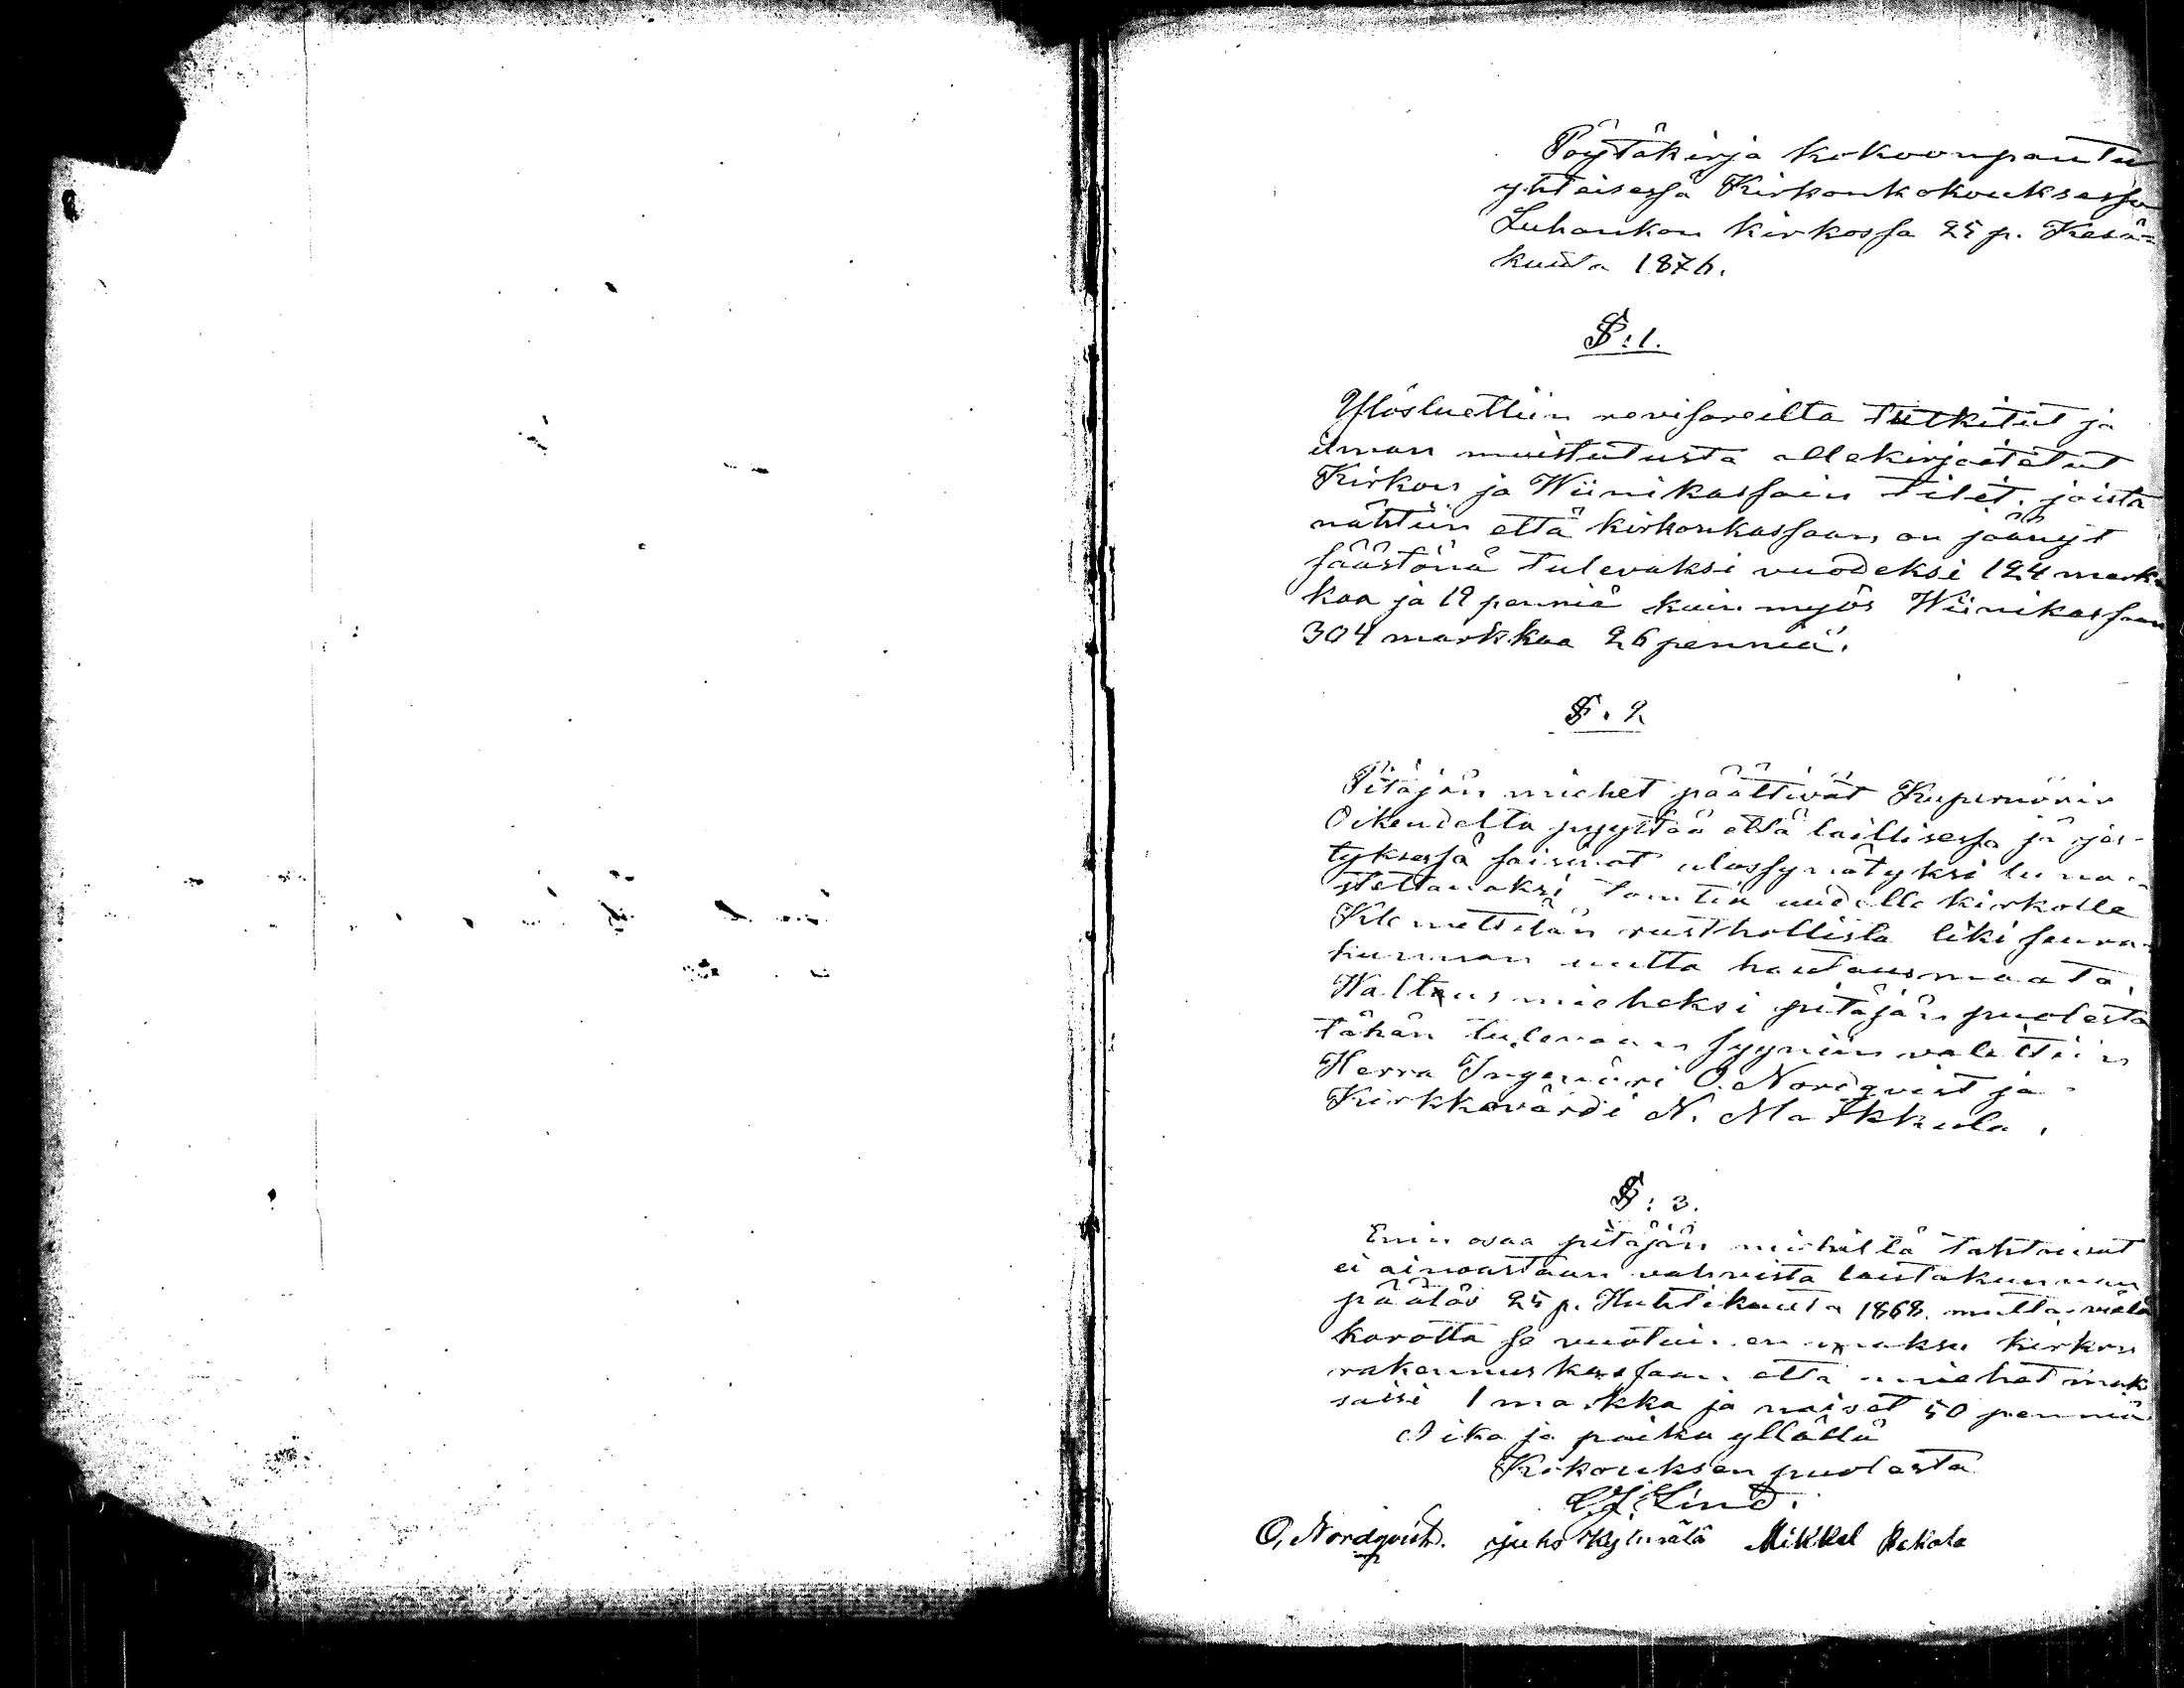 Pöytäkirja kokoonpantu
yhteisessä Kirkonkokouksessa
Luhankan kirkossa 25 p. Kesä=
kuuta 1876.
§:1.
Ylösluettiin revisoreilta tutkitut ja
ilman muistutusta allekirjoitetut
Kirkon ja Wiinikassain tilit, joista
nähtiin että kirkonkassaan on jäänyt
säästönä tulevaksi vuodeksi 124 mark-
kaa ja 19 penniä kuin myös Wiinikassaan
304 markkaa 26 penniä.
§. 2
Pitäjän miehet päättivät Kupernörin
Oikeudelta pyytää että laillisessa järjes-
tyksessä saisivat ulossynätyksi luna-
stettavaksi tomtin uudelle kirkolle
Klemettilän rusthollista liki seura-
kunnan uutta hautausmaata.
Waltuus mieheksi pitäjän puolesta
tähän tulevaan syyniin valittiin
Herra Ingenöri O. Nordqvist ja
Kirkkovärdi N. Markkula.
§: 3.
Enin osaa pitäjän miehistä tahtoivat
ei ainoastaan vahvista laistakunnan
päätös 25 p. Huhtikuuta 1868. mutta vielä
korotta se vuotuinen maksu kirkon
rakennuskassaan että miehet mak
saisi 1 markka ja naiset 50 penniä
Aika ja paikka yllällä
Kokouksen puolesta
C.J. Lind.
O. Nordqvist. Juho Mikkel